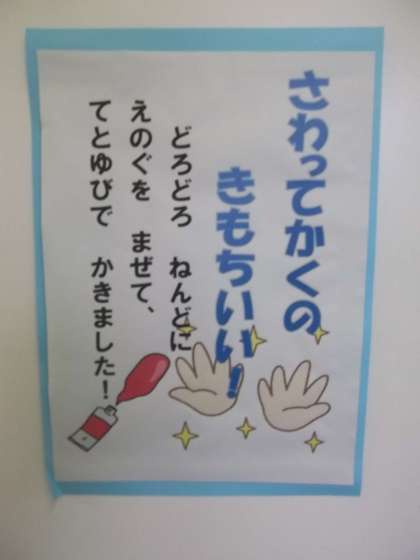 さわってかくの
きもちいい!
どろどろ ねんどに
えのぐを まぜて、
てとゆびで かきました!